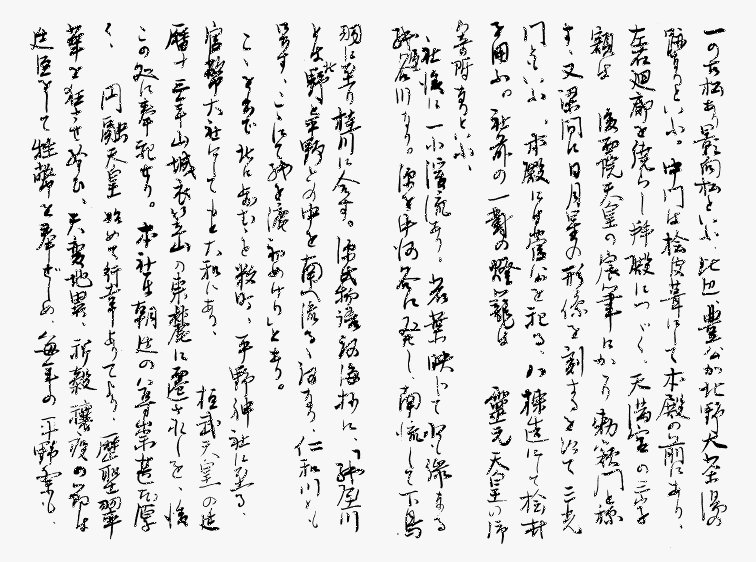 一の古松あり影向松といふ、此辺、豊公が北野大茶湯の
蹟なりといふ。中門は桧皮葺にして本殿の前にあり、
左右廻廊を繞らし拝殿につゞく。天満宮の三字
額は 後西院天皇の宸筆にかゝり勅額門と称
す、又梁間に日月星の形像を刻するを以て三光
門ともいふ。本殿には菅公を祀る、八棟造にして桧材
を用ふ。社前の一対の燈籠は 霊元天皇の御
寄附なりといふ、
社後に一小渓流あり。若葉映じて水緑なる
紙屋川なり。源を中河谷に発し、南流して下鳥
羽に至り桂川に合す。源氏物語河海抄に、「紙屋川
とは北野、平野との中を南へ流るゝ河なり、仁和川とも
号す、こゝにて紙を漉初めけり」とあり。
こゝを出で北に歩むこと数町、平野神社に至る、
官幣大社にしてもと大和にあり、 桓武天皇の延
暦十三年山城衣笠山の東麓に遷されしを、後
この処に奉祀せり。本社は朝廷の尊崇甚だ厚
く、 円融天皇始めて行幸ありてより、歴聖翠
華を狂させ給ひ、天変地異、祈穀禳疫の節は
廷臣をして牲幣を奉ぜしめ、毎年の平野祭も、